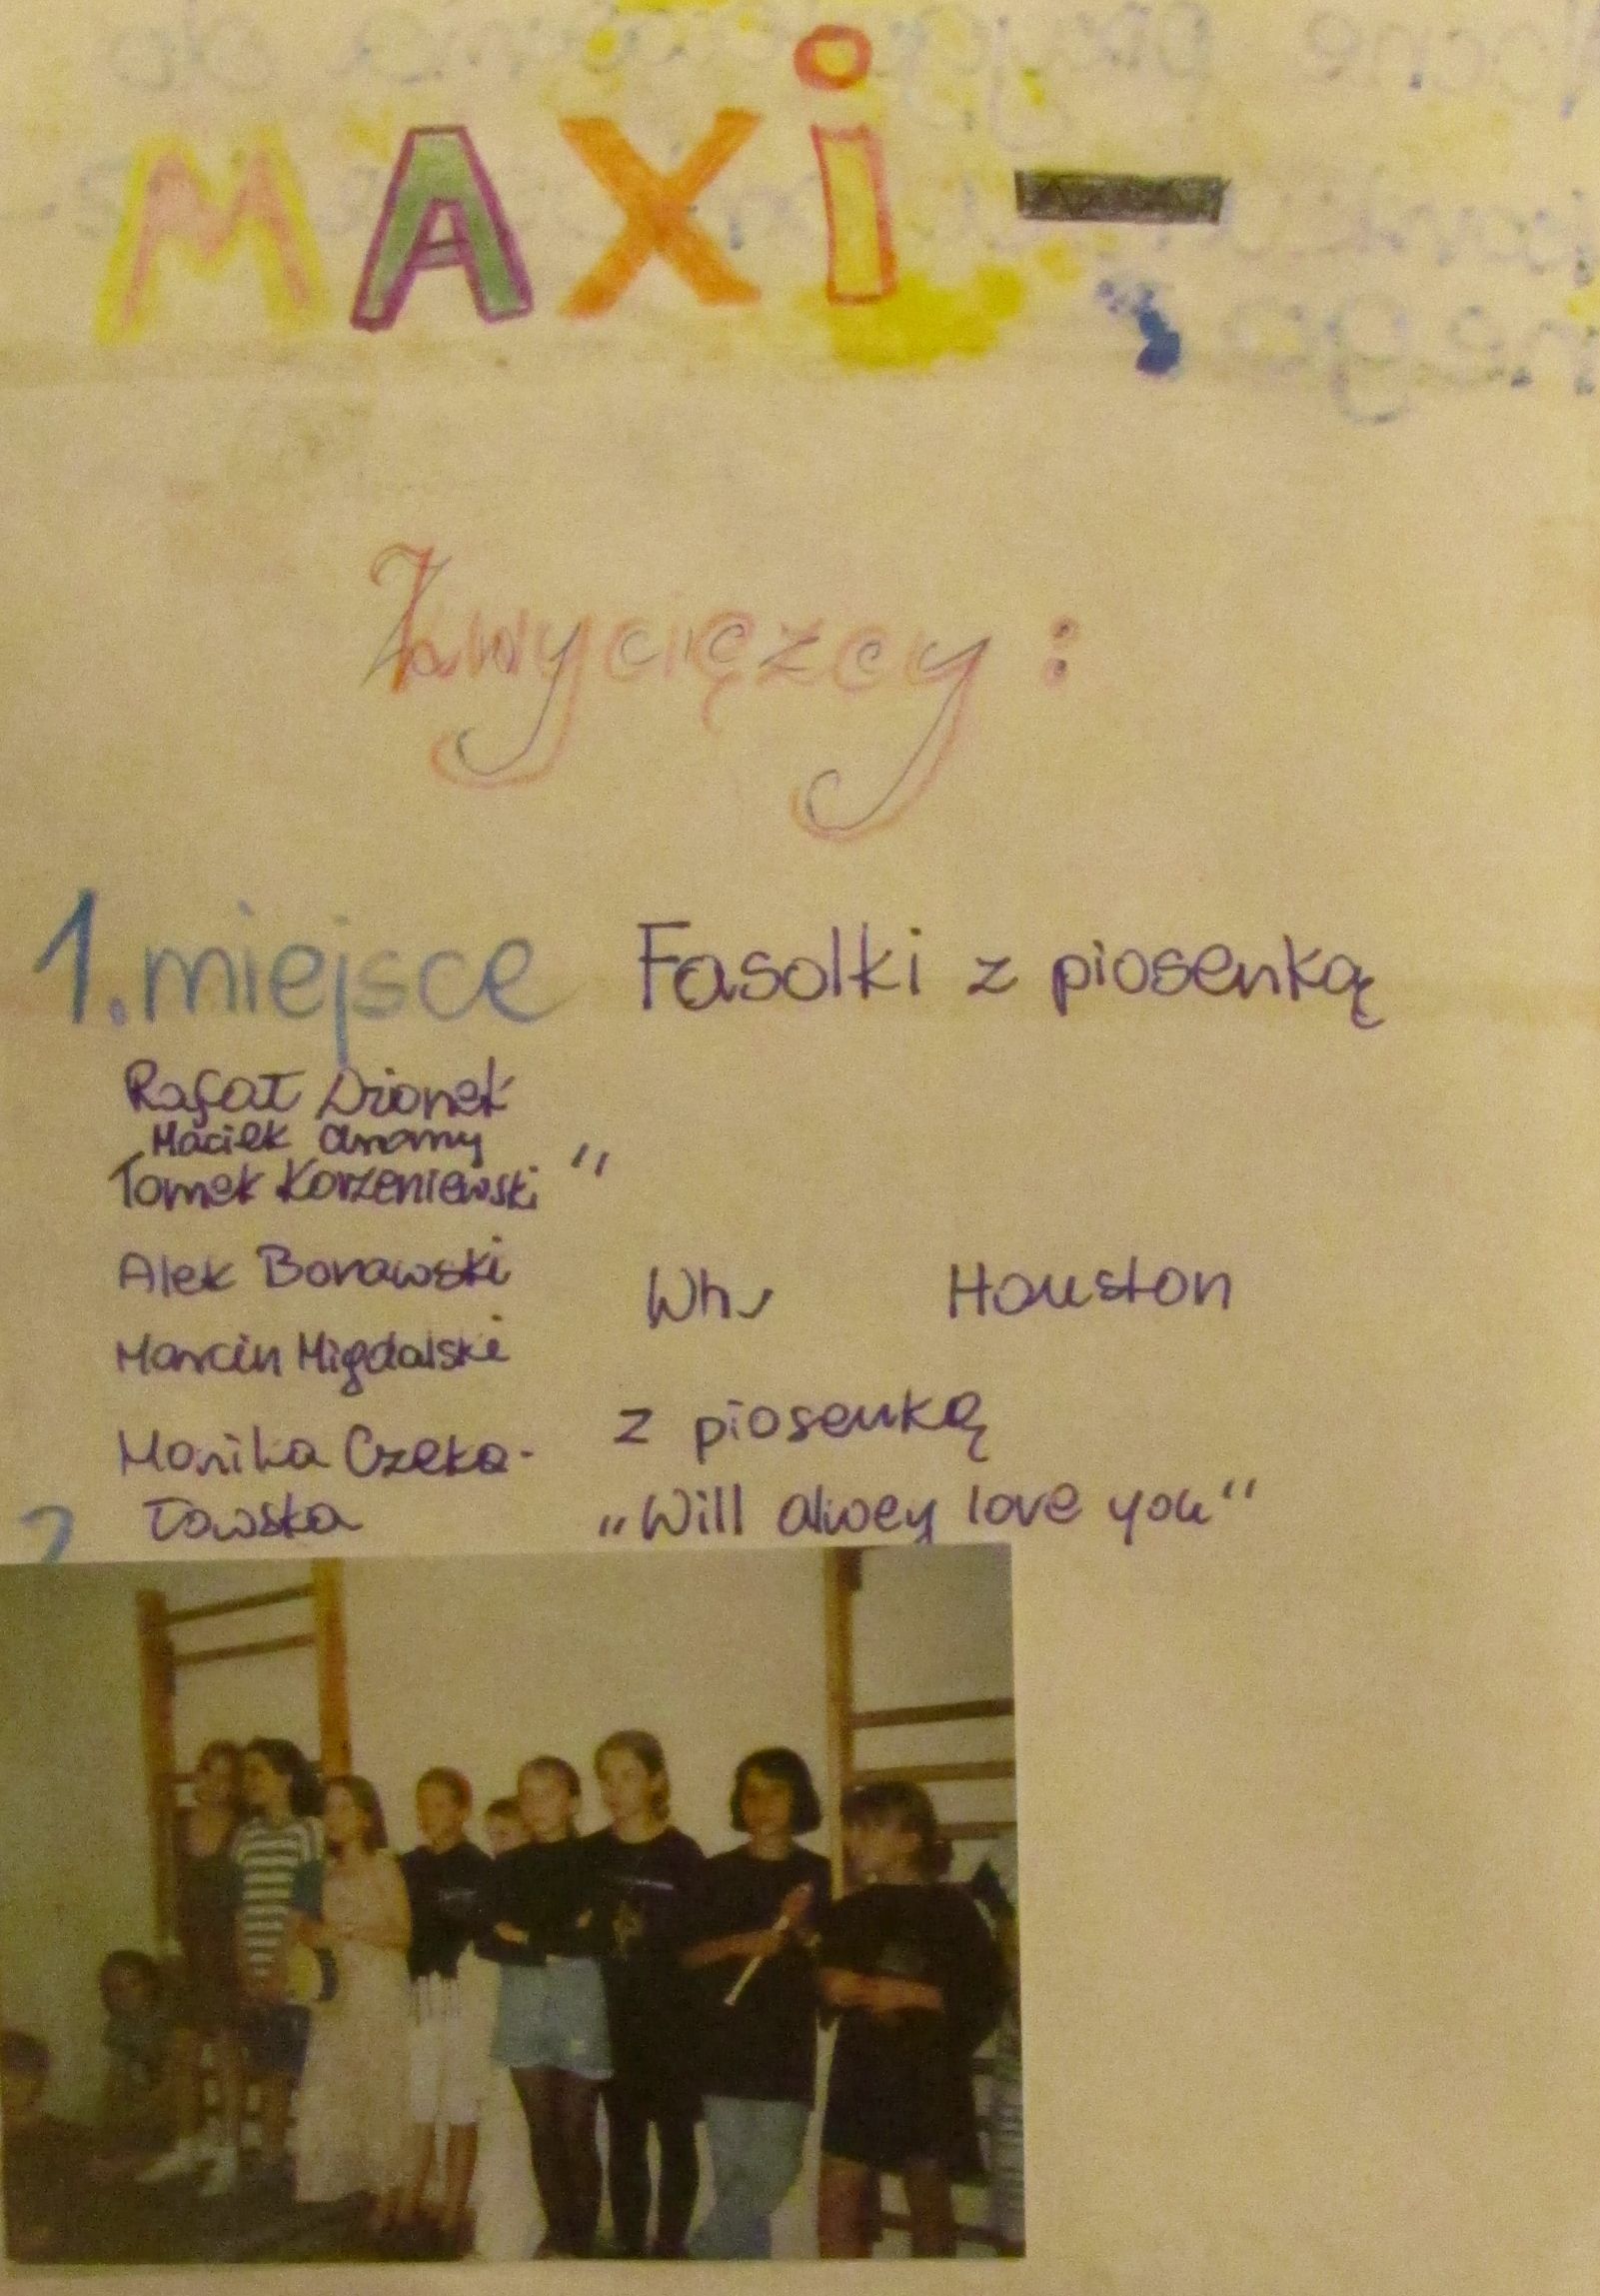 MAXi -
Zwycięzcy :
1. miejsce Fasolki z piosenką
Rafał Dzionek
Maciek
Tomek Korzeniewski "
Alek Bonawski
Houston
Marcin Migdalski
z piosenką
Monika Czeka-
łowska
„Will alwey love you"
2